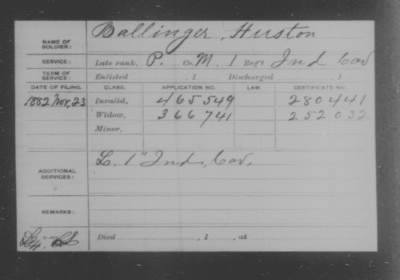 NAME OF SOLDIER: Ballinger, Huston
SERVICE: Late rank, P. Co. M. 1 Reg't Ind Cav
TERM OF SERVICE: Enlisted , 1 Discharged , 1
DATE OF FILING. CLASS. APPLICATION NO. LAW. CERTIFICATE NO.
1882 Nov. 23 Invalid, 465549 280441
Widow, 366741 252032
Minor,
ADDITIONAL SERVICES: L. 1" Ind. Cav.
REMARKS:
Died , 1 , at